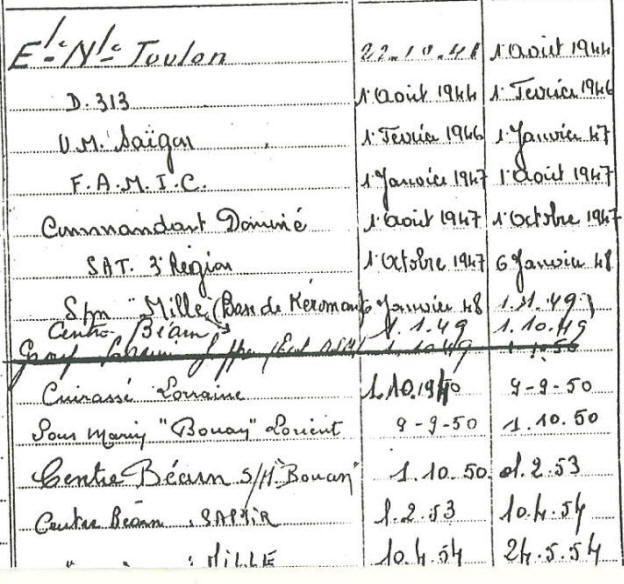 Eᵗ Nᵗ Toulon 22.10.41 1 Août 1944
D.313 1 Août 1944 1 Fevrier 1946
U.M. Saïgon 1 Fevrier 1946 1 Janvier 47
F.A.M.I.C. 1 Janvier 1947 1 Août 1947
Commandant Dominé 1 Août 1947 1 Octobre 1947
SAT. 3 Région 1 Octobre 1947 6 Janvier 48
S/m "Mille" (Base de Kéroman) 6 Janvier 48 1.1.49
Centre Béarn 1.1.49 1.10.49
1.10.49
Cuirassé Lorraine 1.10.1940 9-9-50
Sous Marin "Bouan" Lorient 9-9-50 1.10.50
Centre Béarn S/M "Bouan" 1.10.50 1.2.53
Centre Béarn : SAPHIR 1.2.53 10.4.54
" " : MILLE 10.4.54 24.5.54